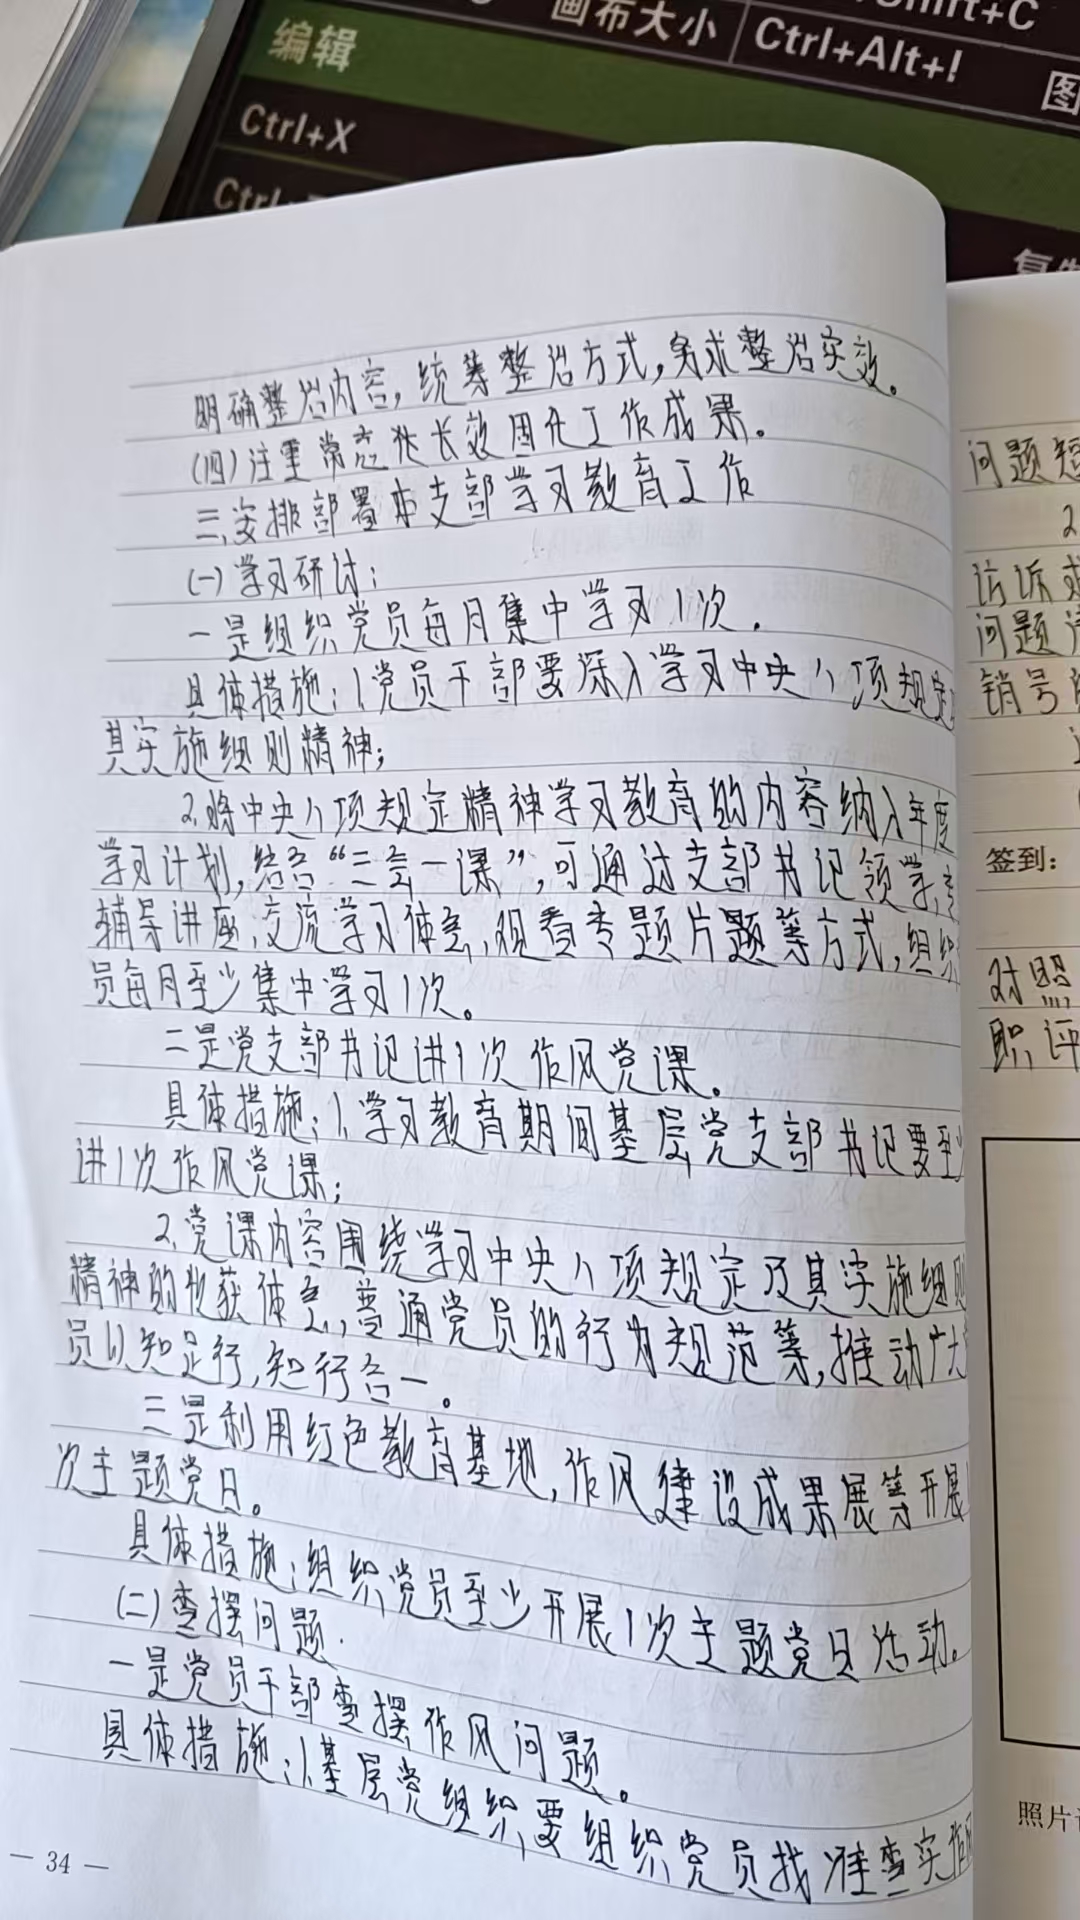 画布大小
Shift+C
Ctrl+Alt+!
编辑
图
Ctrl+X
Ctrl+
明确整治内容，统筹整治方式，务求整治实效。
(四)注重常态化长效固化工作成果。
三、安排部署本支部学习教育工作
(一)学习研讨：
一是组织党员每月集中学习1次。
具体措施：1、党员干部要深入学习中央八项规定
其实施细则精神；
2、将中央八项规定精神学习教育的内容纳入年度
学习计划，结合“三会一课”，可通过支部书记领学、专
辅导讲座、交流学习体会、观看专题片题等方式，组织
员每月至少集中学习1次。
二是党支部书记讲1次作风党课。
具体措施：1、学习教育期间基层党支部书记要至少
讲1次作风党课；
2、党课内容围绕学习中央八项规定及其实施细则
精神的收获体会，普通党员的行为规范等，推动广大
员以知促行，知行合一。
三是利用红色教育基地，作风建设成果展等开展
次主题党日。
具体措施：组织党员至少开展1次主题党日活动。
(二)查摆问题.
一是党员干部查摆作风问题。
具体措施：1、基层党组织要组织党员找准查实作风
— 34 —
问题短
2
访诉求
问题
销号
签到：
对照
职、评
照片